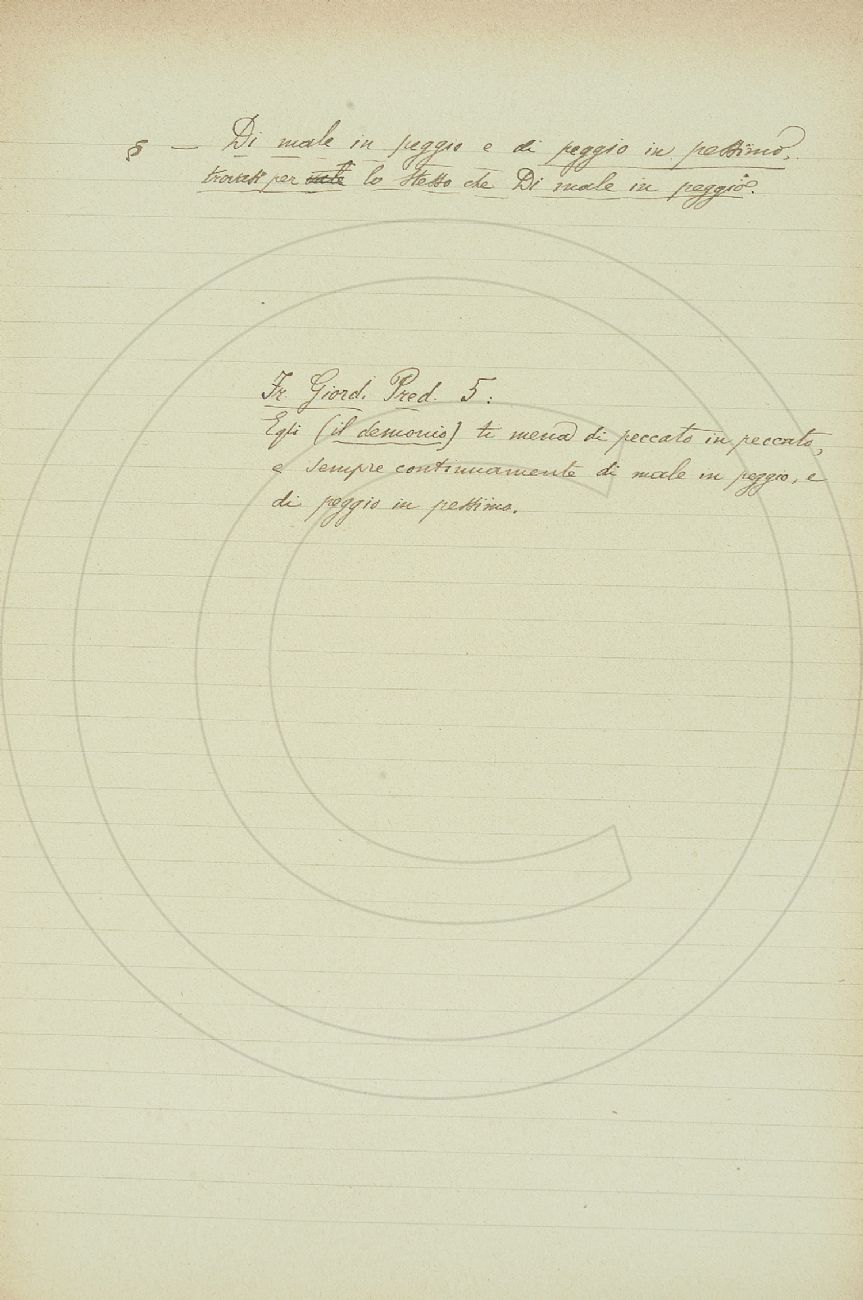 § — Di male in peggio e di peggio in pessimo,
trovasi per lo stesso che Di male in peggio.
Fr. Giord. Pred. 5:
Egli (il demonio) ti mena di peccato in peccato,
e sempre continuamente di male in peggio, e
di peggio in pessimo.